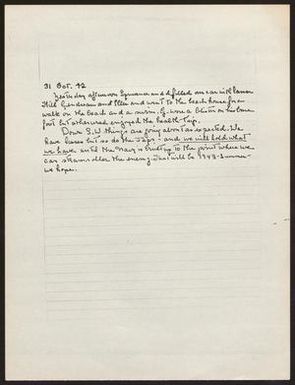 31 Oct. 42
Yesterday afternoon Spruance and I filled our car with Lamar
Hill Gendreau and Allen and went to the beach house for a
walk on the beach and a swim. G. wore a blister on his bare
foot but otherwise enjoyed the health-trip.
Down S.W. things are going about as expected. We
have losses but so do the Japs - and we will hold what
we have until the Navy is built up to the point where we
can steamroller the enemy. That will be 1943 - Summer -
we hope.